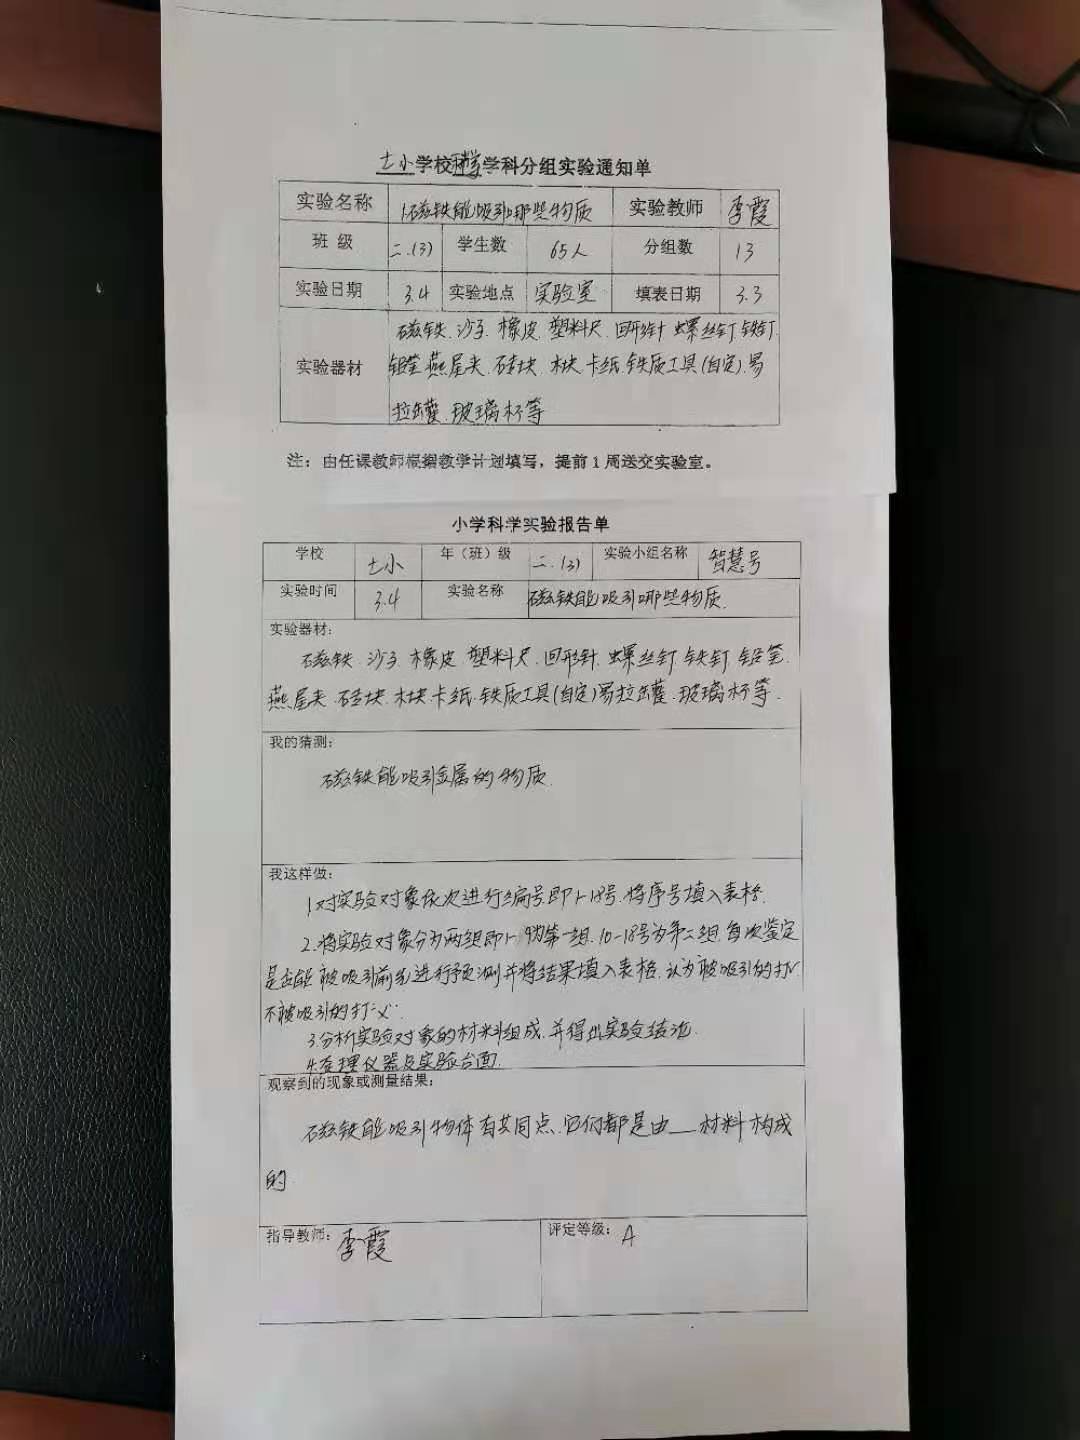 七小学校科学学科分组实验通知单
实验名称 1.磁铁能吸引哪些物质 实验教师 李霞
班 级 二.(3) 学生数 65人 分组数 13
实验日期 3.4 实验地点 实验室 填表日期 3.3
磁铁.沙子.橡皮.塑料尺.回形针.螺丝钉.铁钉.
实验器材 铅笔.燕尾夹.砖块.木块.卡纸.铁质工具(自定).易
拉罐.玻璃杯等
注：由任课教师根据教学计划填写，提前1周送交实验室。
小学科学实验报告单
学校 七小 年（班）级 二.(3) 实验小组名称 智慧号
实验时间 3.4 实验名称 磁铁能吸引哪些物质.
实验器材：
磁铁.沙子.橡皮.塑料尺.回形针.螺丝钉.铁钉.铅笔.
燕尾夹.砖块.木块.卡纸.铁质工具(自定)易拉罐.玻璃杯等.
我的猜测：
磁铁能吸引金属的物质.
我这样做：
1.对实验对象依次进行编号.即1-18号.将序号填入表格.
2.将实验对象分为两组即1-9为第一组.10-18号为第二组.每次鉴定
是否能被吸引前先进行预测并将结果填入表格.认为被吸引的打√
不被吸引的打"×".
3.分析实验对象的材料组成.并得出实验结论.
4.整理仪器及实验台面.
观察到的现象或测量结果：
磁铁能吸引物体有共同点.它们都是由__材料构成
的.
指导教师：李霞 评定等级：A